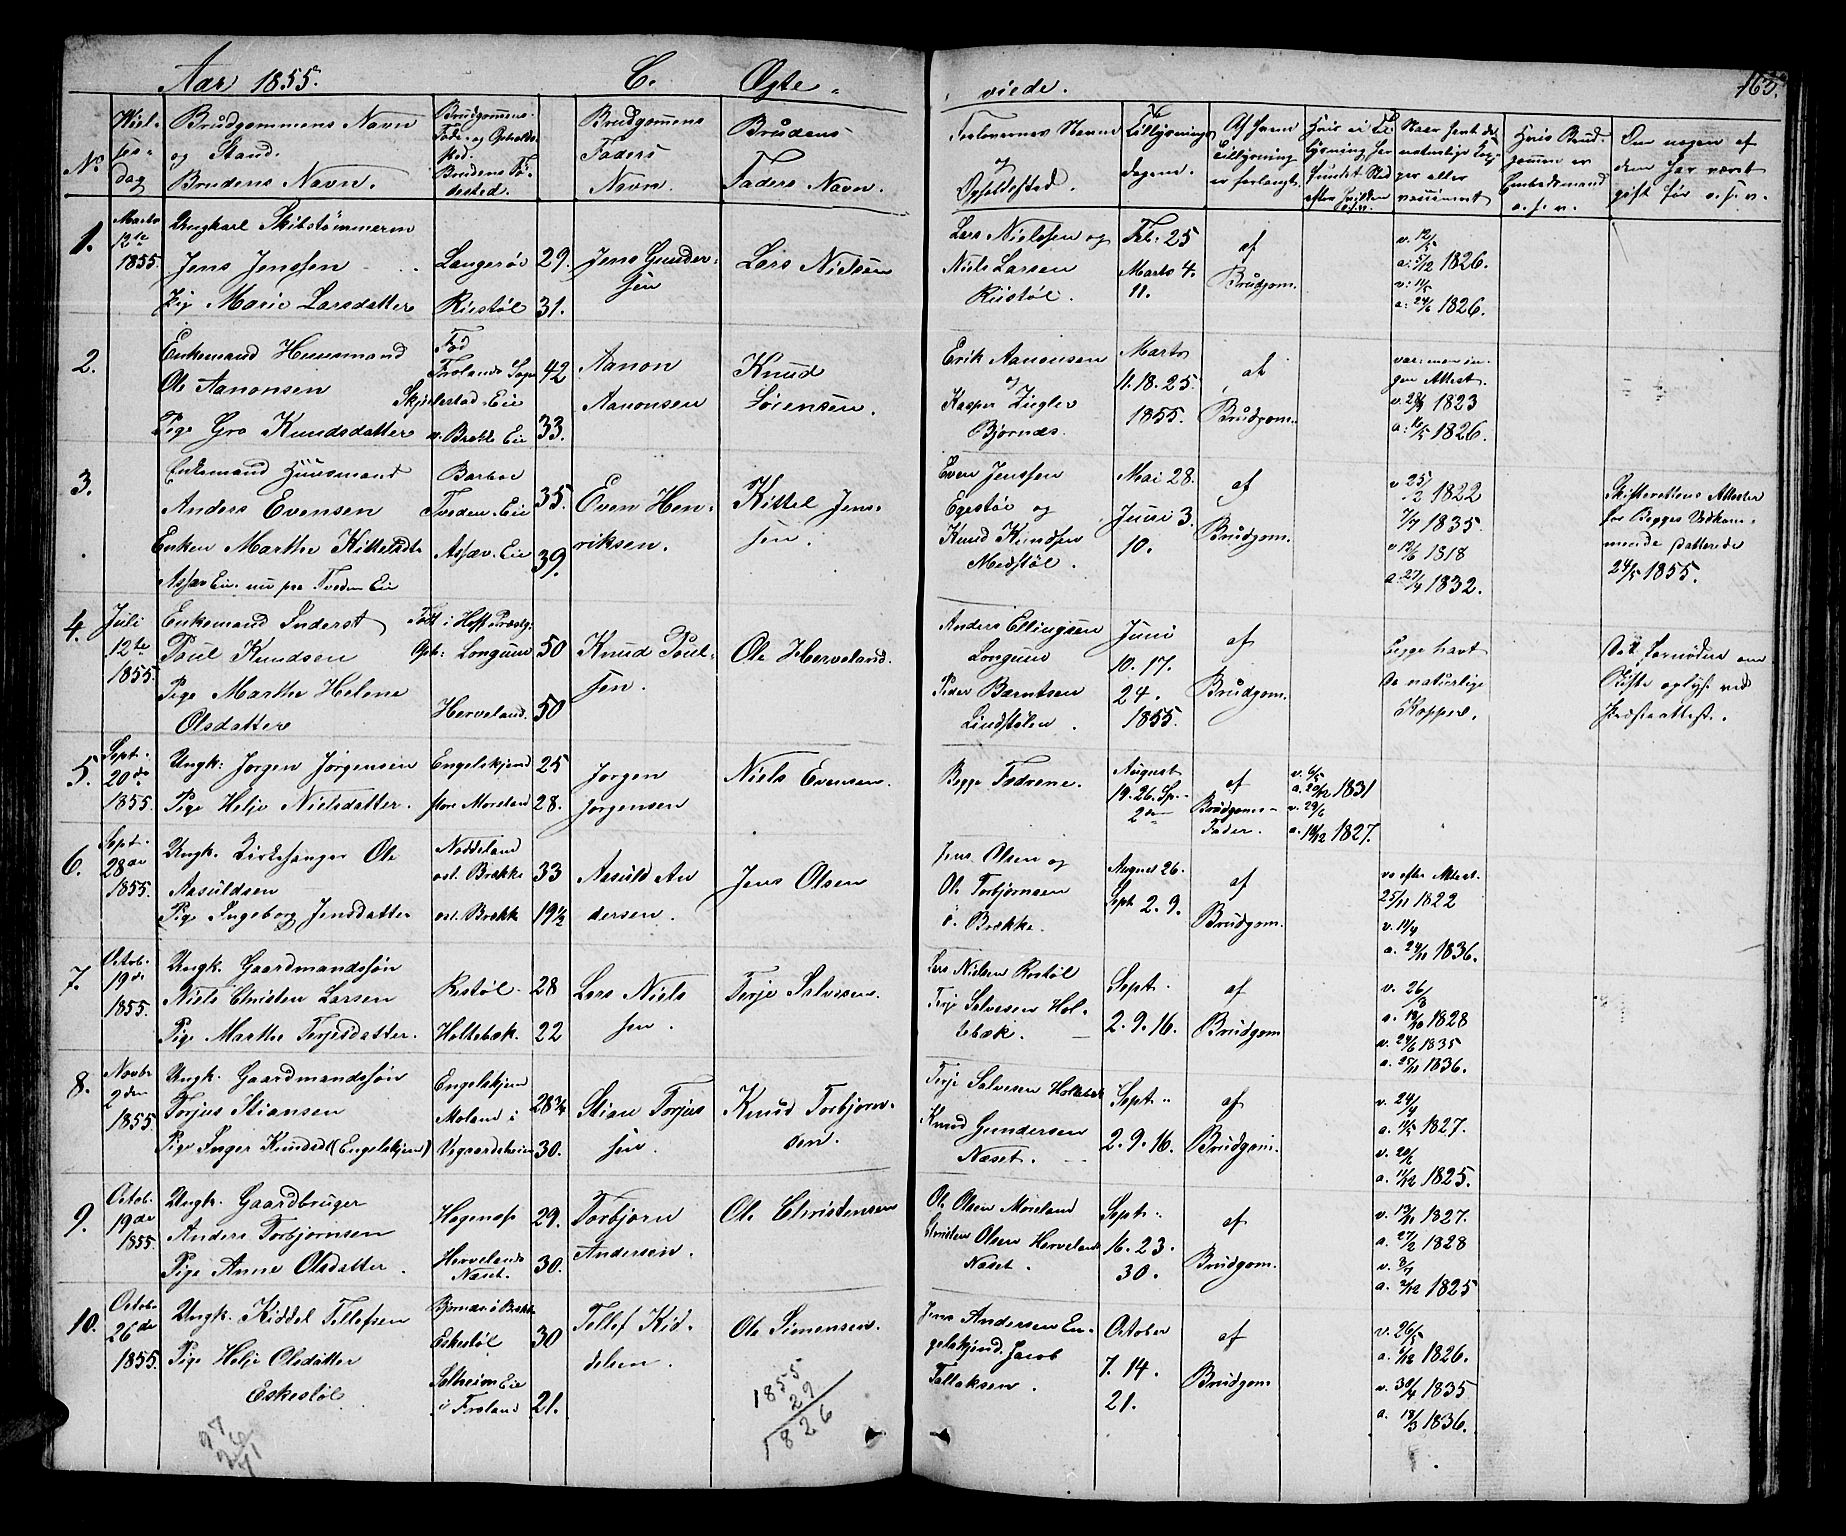 Aar 1855. C. Ægte- viede. 163.
No.
Viel-
ses-
dag
Brudgommens Navn
og Stand.
Brudens Navn.
Brudgommens
Føde- og Opholds-
sted.
Brudens Fø-
dested.
Brudgomens
Faders
Navn.
Brudens
Faders Navn.
Forlovernes Navne
og
Opholdssted.
Tillysnings
dagene.
Af hvem
Tillysning
er forlangt.
Hvis ei Til-
lysning har
fundet Sted
efter hvilken
o.s.v.
Naar havt de
naturlige Kop-
per eller
vaccineret
Hvis Brud-
gommen er
Embedsmand
o.s.v.
Om nogen af
dem har været
gift før o.s.v.
1.
Marts
12te
1855.
Ungkarl Skibstømmerm
Jens Jensen
Pig Marie Larsdatter
Langerøe
Riestøl
29.
31.
Jens Gunder-
sen
Lars Nielsen
Lars Nielsen og
Niels Larsen
Riistøl.
Feb: 25
Marts 4.
11.
af
Brudgom.
v. 12/5
a: 5/12 1826.
v: 11/5
a: 24/6 1826.
2.
Enkemand Huusmand
Ole Aanonsen
Pige Gro Knudsdatter
Fød
Frolands Sogn
Skjelestad-Eie
v. Brekke Eie
42
33.
Aanon
Aanonsen
Knud
Sørensen.
Erik Aanonsen
og
Kasper Ziegler
Bjornæs.
Marts
11. 18. 25.
1855.
af
Brudgom.
var: men in-
gen Attest.
v. 28/9 1823
a: 16/5 1826.
3.
Enkemand Huusmand
Anders Evensen
Enken Marthe Kittelsdtr
Assæv Eie nu paa Tveden Eie
Barboe
Tveden-Eie
Assæv-Eie
35.
39.
Even Hen-
riksen.
Kittel Jens-
sen.
Even Jensen
Egestøl og
Knud Knudsen
Medstøl.
Mai 28.
Juni 3.
10.
af
Brudgom.
v 25/2 1822
7/7 1835.
v 19/6 1818
a. 27/7 1832.
Skifterettens Attester
for Begges Vedkom-
mende daterede
24/5 1855.
4.
Juli
12te
1855.
Enkemand Inderst
Poul Knudsen
Pige Marthe Helene
Olsdatter
Født i Hoff Præstgj.
Oph: Longum
Herveland.
50
50
Knud Poul-
sen.
Ole Herveland.
Anders Ellingsen
Longum
Peder Berntsen
Lindstølen.
Juni
10. 17.
24.
1855.
af
Brudgom.
Begge havt
de naturlige
Kopper.
Det fornødne om
Skifte oplyst ved
Præsteattest.
5.
Sept.
20de
1855.
Ungk: Jørgen Jørgensen
Pige Helje Nielsdatter.
Engelskjønd
store Moreland
25
28.
Jørgen
Jørgensen
Niels Evensen.
Begge Fædrene.
August
19. 26. Sp.
2den
af
Brudgoms-
Fader.
v. 6/5
a. 20/12 1831
v. 29/6
a. 18/12 1827.
6.
Sept.
28de
1855.
Ungk. Kirkesanger Ole
Aasuldsen
Pige Ingeborg Jensdatter
Noddeland
øst. Brække
øst. Brække
33
19 1/2
Aasuld An
dersen.
Jens Olsen
Jens Olsen og
Ole Torbjørnsen
ø. Brække.
August 26.
Sept 2. 9.
af
Brudgom.
va efter Attest.
25/11 1822
v. 14/4
a. 24/11 1836.
7.
Octob.
19de
1855.
Ungk. Gaardmandssøn
Niels Christen Larsen
Pige Marthe Terjesdatter.
Restøl.
Holtebæk.
28
22
Lars Niels
sen.
Terje Salvesen.
Lars Nielsen Rostøl
Terje Salvesen Hol-
tebæk.
Sept.
2. 9. 16.
af
Brudgom
v. 26/3
a. 19/10 1828
v. 24/6 1835
a. 25/11 1836.
8.
Novbr
2den
1855.
Ungk. Gaardmandssøn
Torjus Stiansen
Pige Inger Knudsd (Engelskjen)
Engelskjen
Moland i
Vegaardsheien
28 3/4
30.
Stian Torjus
sen.
Knud Torbjorn-
sen.
Terje Salvesen Holtebæk
Knud Gundersen
Næset.
Sept.
2. 9. 16.
af
Brudgom.
v. 24/4
a. 11/5 1827.
v. 20/6
a. 11/12 1825.
9.
Octob.
19de
1855.
Ungk. Gaardbruger
Anders Torbjørnsen
Pige Anne Olsdatter.
Hagenæs
Hervelands
Næset.
29.
30.
Torbjørn
Andersen.
Ole Christensen
Ole Olsen Moreland
Christen Olsen Hervelands
Næset.
Sept.
16. 23.
30.
af
Brudgom.
v. 13/11 1827.
a. 27/2 1828
v. 8/7
a. 2/12 1825
10.
Octob.
26de
1855.
Ungk. Kiddel Tellefsen
Pige Helje Olsdatter
Eskestøl
Bjørndæl Brekke
Eskestøl
Solheim Eie
i Froland
30
21.
Tellef Kid-
delsen.
Ole Simensen.
Jens Andersen En-
gelskjønd. Jacob
Tallaksen.
October
7. 14.
21.
af
Brudgom
v. 26/5
a. 6/12 1826.
v. 30/9 1835
a. 18/3 1836.
1855
29
1826